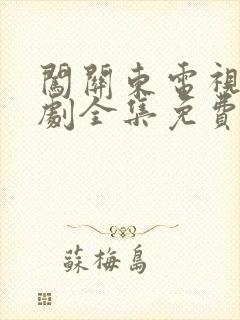 闖關東電視
劇全集免費
蘇梅島